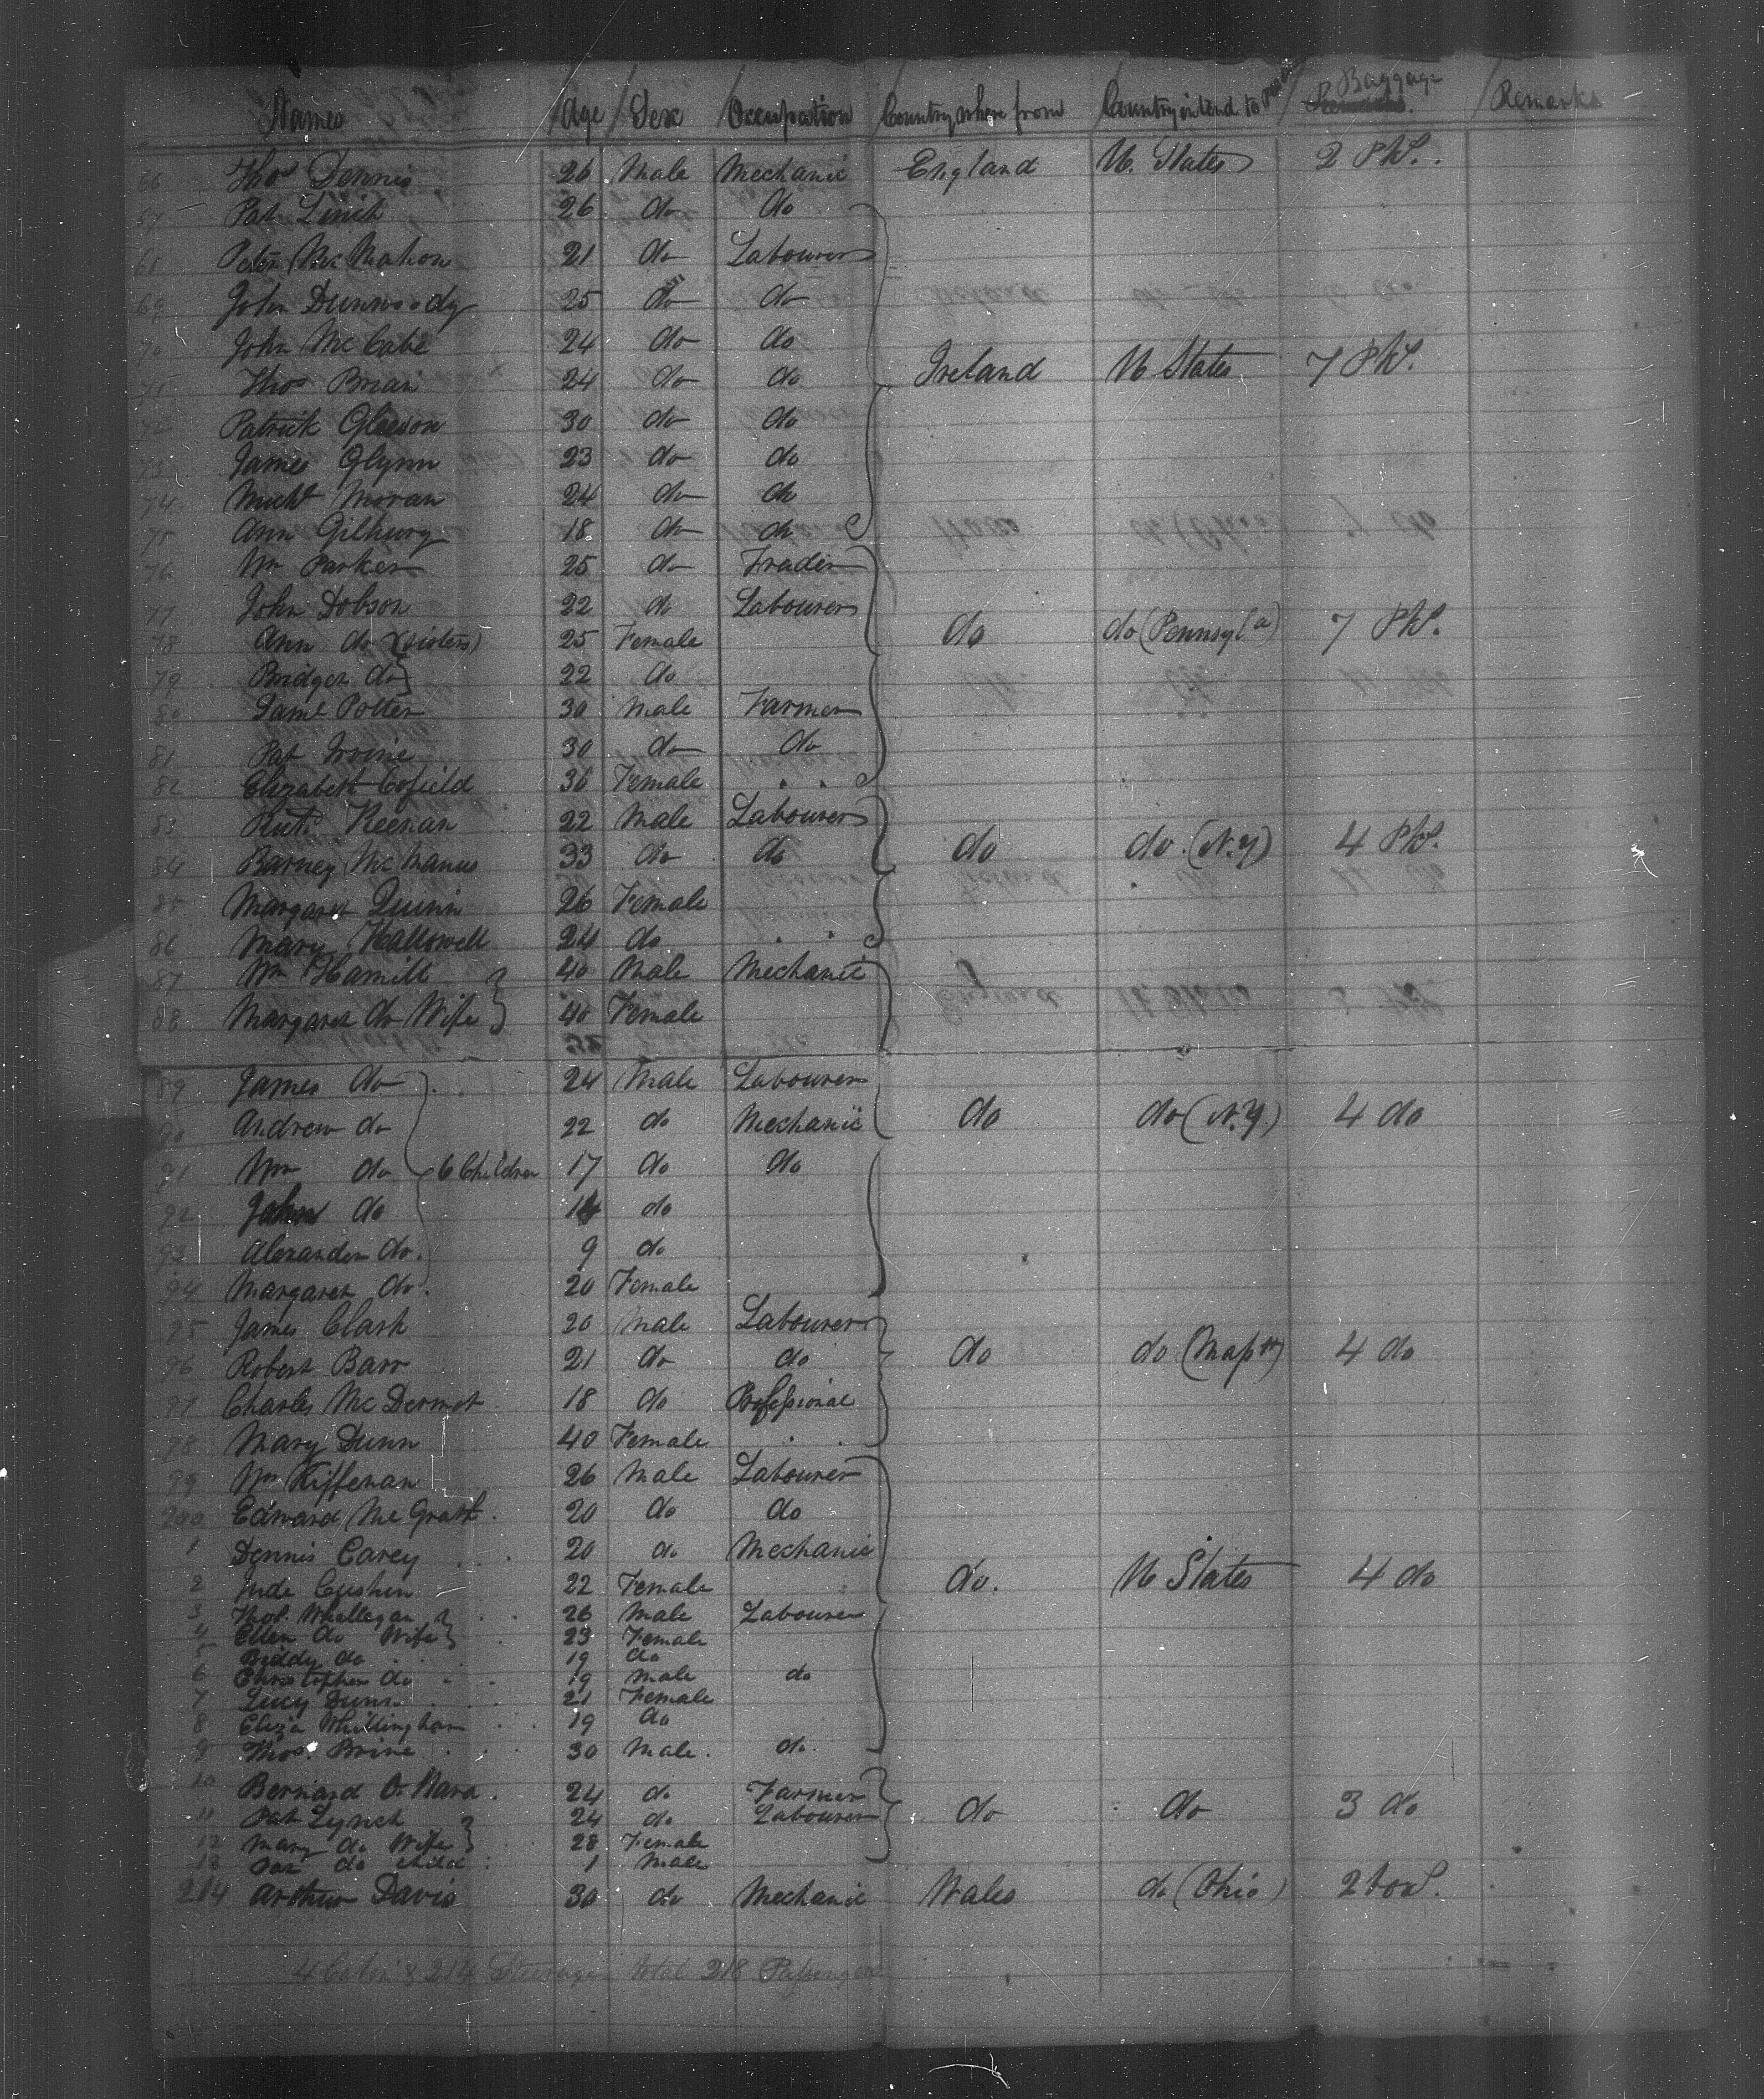 Names Age Sex Occupation Country where from Country intend to Baggage Remarks
66 Thos Dennis 26 Male Mechanic England U. States 2 Pks.
67 Pat Linch 26 do do
68 Peter McMahon 21 do Labourer
69 John Dunwoody 25 do do
70 John McCabe 24 do do
Thos Brian 24 do do Ireland U States 7 Pks.
72 Patrick Gleeson 30 do do
73 James Glynn 23 do do
74 Michl Moran 24 do do
75 Ann 18 do do
76 Wm Parker 25 do Trader
77 John Dobson 22 do Labourer
78 Ann do (sisters) 25 Female do do (Pennsyla) 7 Pks.
79 Bridget do 22 do
80 Saml Potter 30 Male Farmer
81 Pat Irvine 30 do do
82 Elizabeth Cofield 36 Female
83 Keenan 22 Male Labourer
84 Barney McManus 33 do do do do (N.Y) 4 Pks.
85 Margaret Quinn 26 Female
86 Mary Hallowell 24 do
87 Wm Hamill 40 Male Mechanic
88 Margaret do Wife 40 Female
89 James do 24 Male Labourer
90 Andrew do 22 do Mechanic do do (N.Y.) 4 do
91 Wm do 6 Children 17 do do
92 John do 14 do
93 Alexander do. 9 do
94 Margaret do. 20 Female
95 James Clark 20 Male Labourer
96 Robert Barr 21 do do do do (Masstts) 4 do
97 Charles McDermot 18 do Professional
98 Mary Dunn 40 Female
99 Wm Kiffenan 26 Male Labourer
200 Edward McGrath 20 do do
1 Dennis Carey 20 do Mechanic
2 Jude Cushin 22 Female do. U States 4 do
3 Thos. Whellegan 26 Male Labourer
4 Ellen do Wife 23 Female
5 Biddy do 19 do
6 Christopher do 19 Male do
7 Lucy Dunn 21 Female
8 Eliza Whillingham 19 do
9 Thos. Brine 30 Male. do
10 Bernard O.Hara. 24 do Farmer
11 Pat Lynch 24 do Labourer do do 3 do
12 Mary do Wife 28 Female
13 do child 1 Male
214 Arthur Davis 30 do Mechanic Wales do (Ohio) 2 boxs.
4 Cabin & 214 Steerage total 218 Passengers